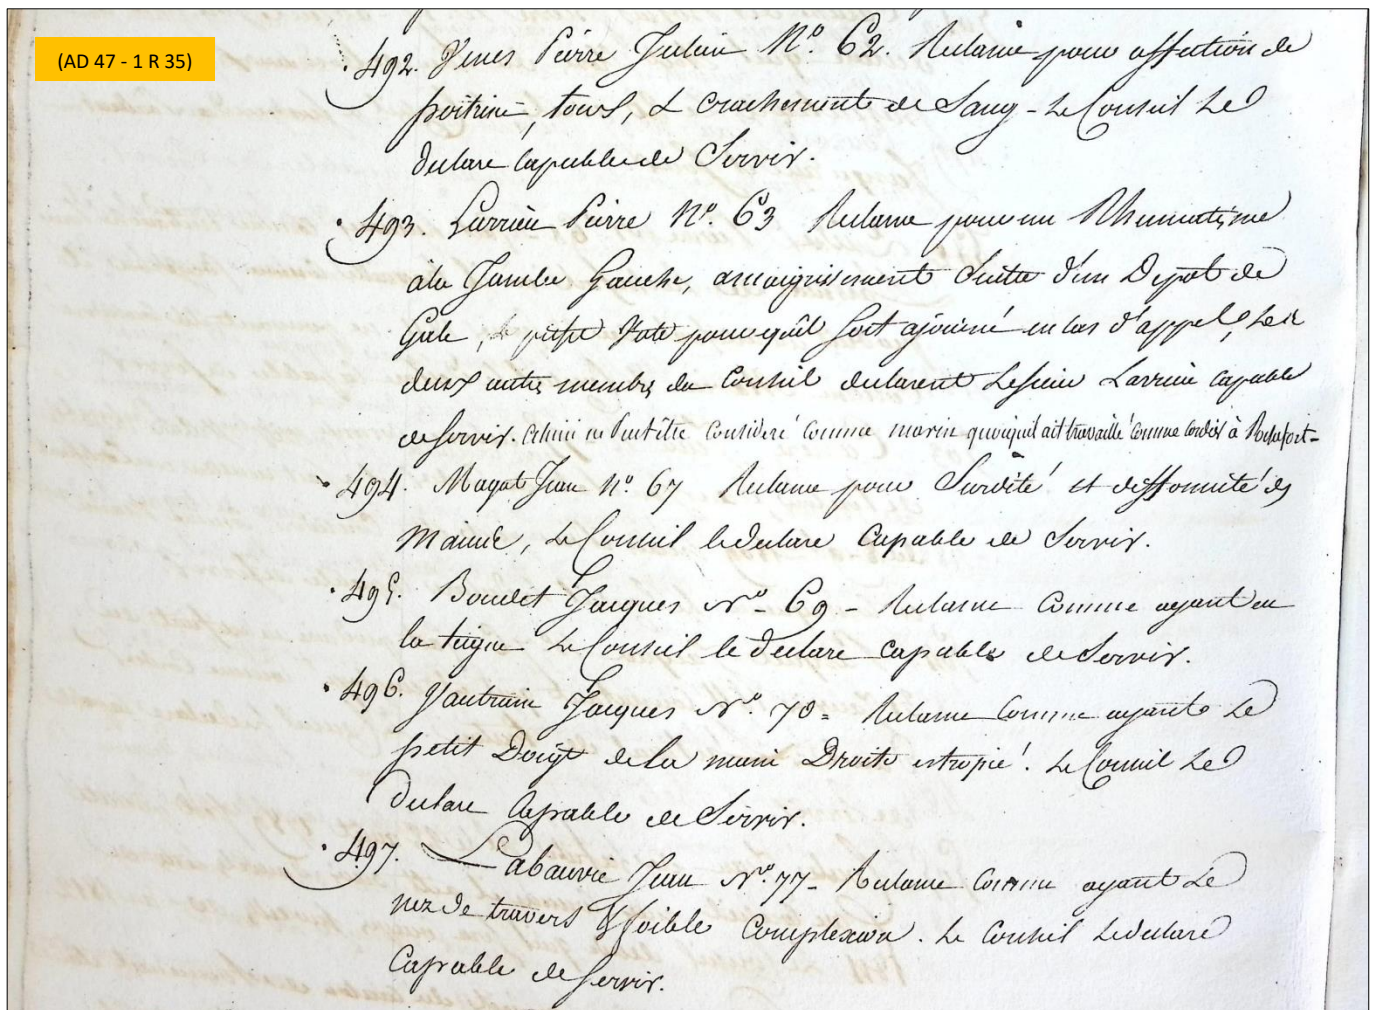 (AD 47 - 1 R 35)
492. Venes Pierre Julien N.º 62. Reclame pour affection de
poitrine, toux, & crachement de Sang - Le Conseil Le
declare capable de Servir.
493. Larrieu Pierre N.º 63 Reclame pour un Rhumatisme
à la Jambe Gauche, amaigrissement Suite d'un Depot de
Gale, le prefet Vote pour qu'il soit ajourné en cas d'appel, Les
deux autres membres du Conseil declarent Le sieur Larrieu capable
de Servir. Celui ci ne Peut être Consideré Comme marin quoiqu'il ait travaillé Comme Cordier à Rochefort -
494. Magat Jean N.º 67 Reclame pour Surdité et difformité des
Mains, Le Conseil le declare Capable de Servir.
495. Boudet Jacques N.º - 69 - Reclame Comme ayant eu
la teigne Le Conseil le declare capable de Servir.
496. Vautrain Jacques N.º 70 = Reclame Comme ayant Le
petit Doigt de la main Droite estropié. Le Conseil Le
declare Capable de Servir.
497. Labauvie Jean N.º 77 - Reclame Comme ayant Le
nez de travers & foible Complexion. Le Conseil Le declare
Capable de Servir.